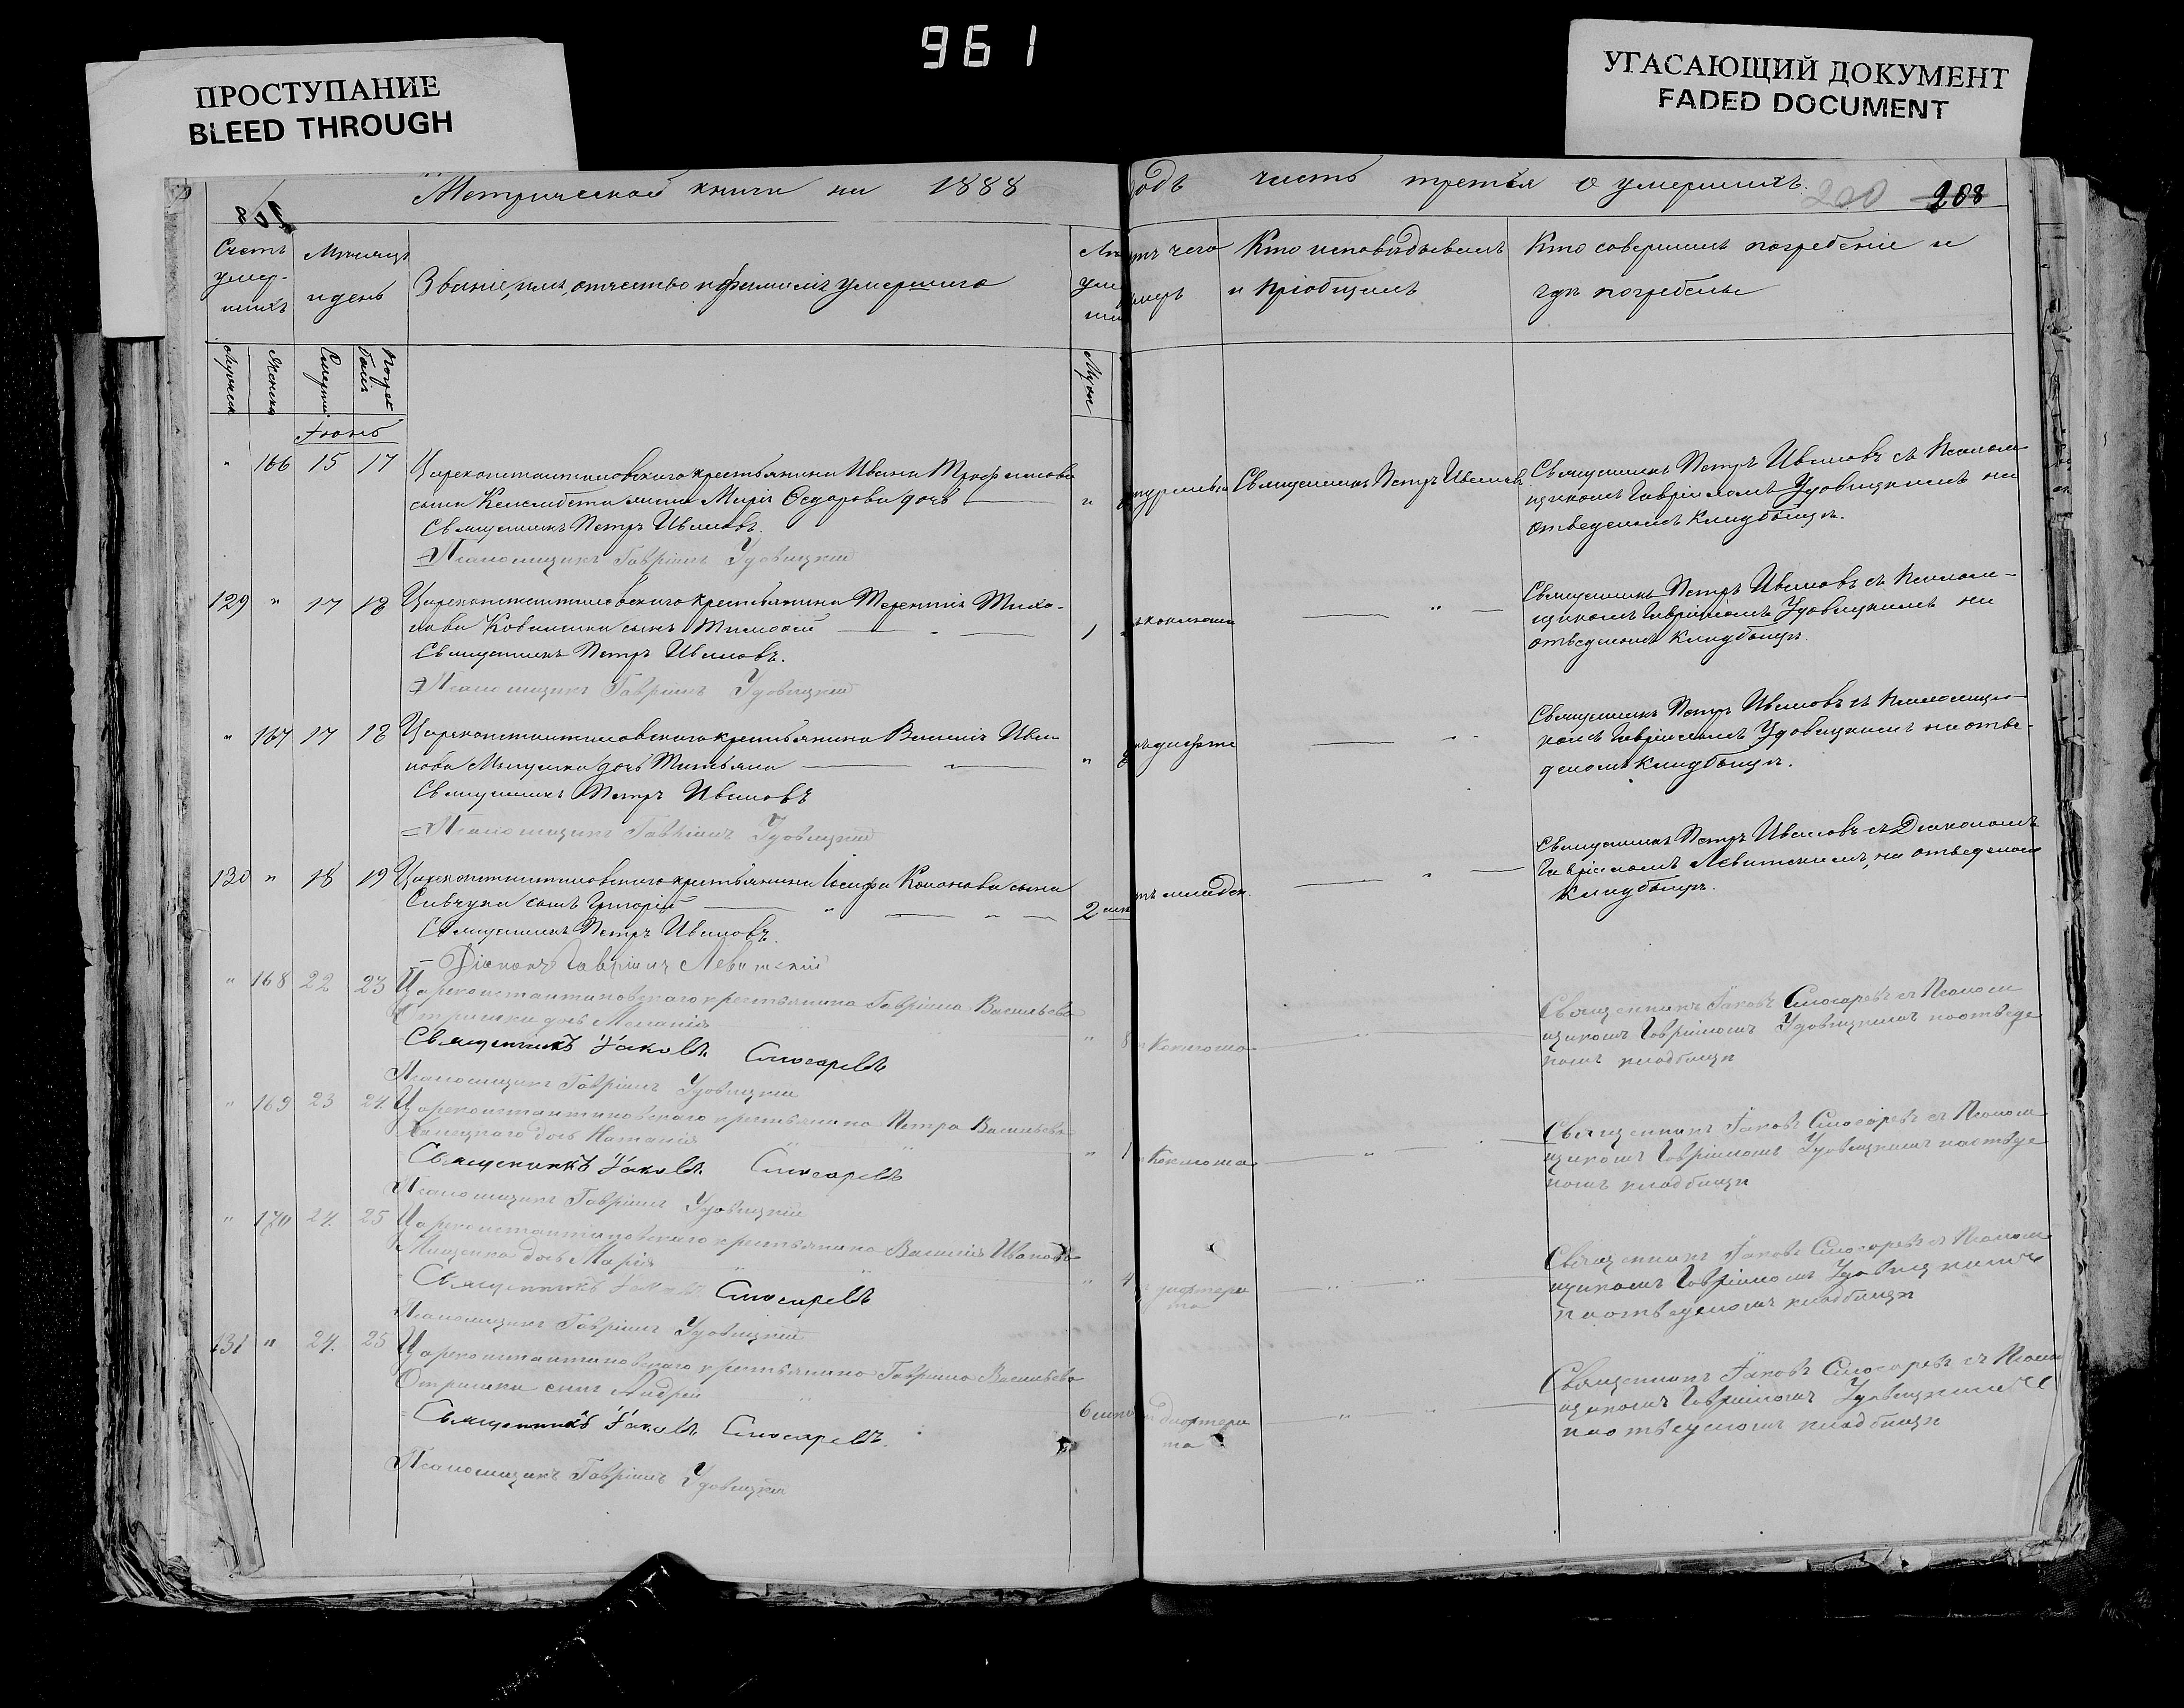 961
ПРОСТУПАНИЕ
BLEED THROUGH
УГАСАЮЩИЙ ДОКУМЕНТ
FADED DOCUMENT
Метрической книги на 1888
годъ часть третья о умершихъ.
200 208
Счетъ умер-шихъ
Мѣсяцъ и день
Званіе, имя, отчество и фамилія умершаго
Кто исповѣдывалъ и пріобщалъ
Кто совершалъ погребеніе и гдѣ погребены
Іюнь
" 166 15 17 Цареконстантиновскаго крестьянина Ивана Трофимова
сына жена Марія Ѳедорова дочь
Священникъ Петръ Ивановъ.
Псаломщикъ Гавріилъ Удовицкій
Священникъ Петръ Ивановъ
Священникъ Петръ Ивановъ съ Псалом-
щикомъ Гавріиломъ Удовицкимъ на
отведеномъ кладбищѣ.
129 " 17 18 Цареконстантиновскаго крестьянина Терентія Тихо-
нова сынъ Тимоѳей 1
Священникъ Петръ Ивановъ.
Псаломщикъ Гавріилъ Удовицкій
коклюша
Священникъ Петръ Ивановъ съ Псалом-
щикомъ Гавріиломъ Удовицкимъ на
отведеномъ кладбищѣ.
" 167 17 18 Цареконстантиновскаго крестьянина Василія Ива-
нова дочь Татьяна
Священникъ Петръ Ивановъ
Псаломщикъ Гавріилъ Удовицкій
Священникъ Петръ Ивановъ съ Псаломщи-
комъ Гавріиломъ Удовицкимъ на отве-
деномъ кладбищѣ.
130 " 18 19 Цареконстантиновскаго крестьянина Іосифа Кононова сына
Савчука сынъ Григорій 2
Священникъ Петръ Ивановъ.
Діаконъ Гавріилъ Левитскій
Священникъ Петръ Ивановъ съ Діакономъ
Гавріиломъ Левитскимъ, на отведеномъ
кладбищѣ.
" 168 22 23 Цареконстантиновскаго крестьянина Гавріила Васильева
Отришка дочь Меланія " 8
Священникъ Іаковъ Слюсаревъ
Псаломщикъ Гавріилъ Удовицкій
Коклюша
Священникъ Іаковъ Слюсаревъ съ Псалом
щикомъ Гавріиломъ Удовицкимъ на отведе
номъ кладбищѣ
" 169 23 24 Цареконстантиновскаго крестьянина Петра Васильева
дочь Наталія " 1
Священникъ Іаковъ Слюсаревъ
Псаломщикъ Гавріилъ Удовицкій
Коклюша
Священникъ Іаковъ Слюсаревъ съ Псалом
щикомъ Гавріиломъ Удовицкимъ на отведе
номъ кладбищѣ
" 170 24. 25 Цареконстантиновскаго крестьянина Василія Иванова
Мищенка дочь Марія " 4
Священникъ Іаковъ Слюсаревъ
Псаломщикъ Гавріилъ Удовицкій
дифтери
та
Священникъ Іаковъ Слюсаревъ съ Псалом
щикомъ Гавріиломъ Удовицкимъ
на отведеномъ кладбищѣ
131 " 24. 25 Цареконстантиновскаго крестьянина Гавріила Васильева
Отришка сынъ Андрей 6
Священникъ Іаковъ Слюсаревъ.
Псаломщикъ Гавріилъ Удовицкій
дифтери
та
Священникъ Іаковъ Слюсаревъ съ Псалом
щикомъ Гавріиломъ Удовицкимъ
на отведеномъ кладбищѣ